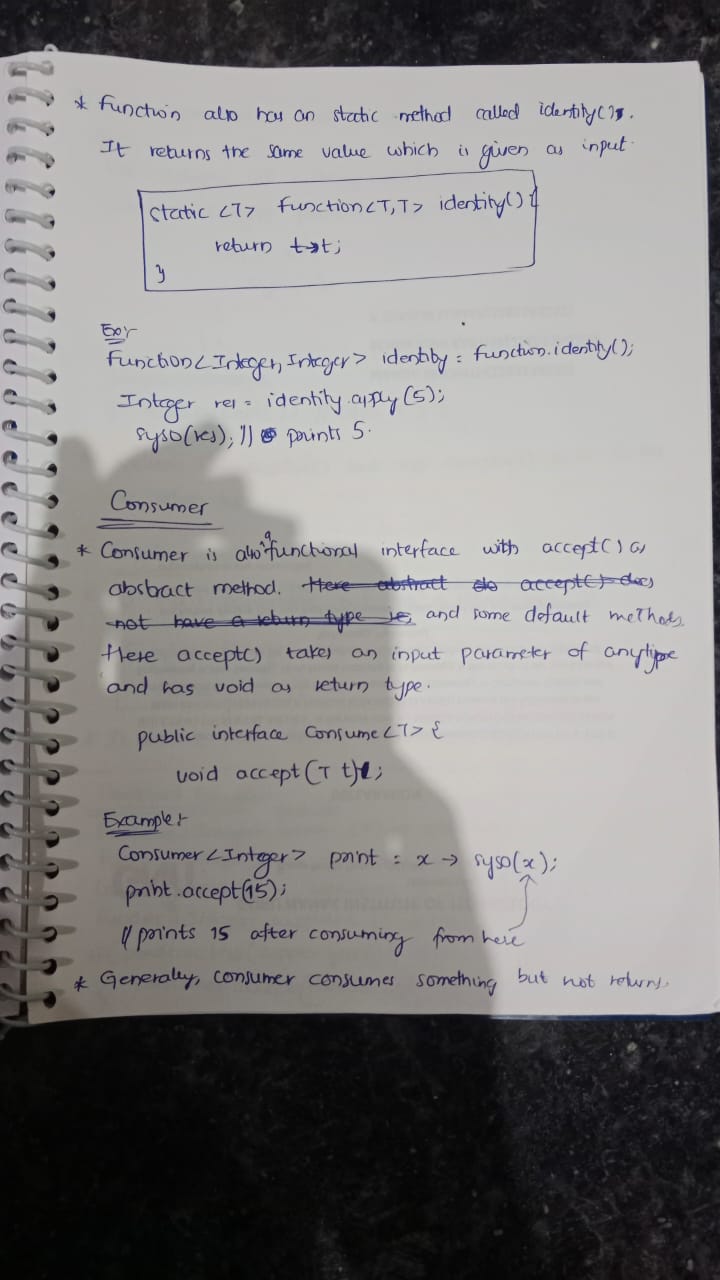 * Function also has an static method called identity().
It returns the same value which is given as input.
static <T> Function<T,T> identity() {
return t->t;
}
Ex:-
Function<Integer, Integer> identity = function.identity();
Integer res = identity.apply(5);
syso(res); // prints 5.
Consumer
* Consumer is also a functional interface with accept() as
abstract method. Here abstract do accept() does
not have a return type ie, and some default methods.
Here accept() takes an input parameter of anytype
and has void as return type.
public interface Consume<T> {
void accept(T t);
Example:-
Consumer<Integer> print = x -> syso(x);
print.accept(15);
// prints 15 after consuming from here
* Generally, consumer consumes something but not returns.